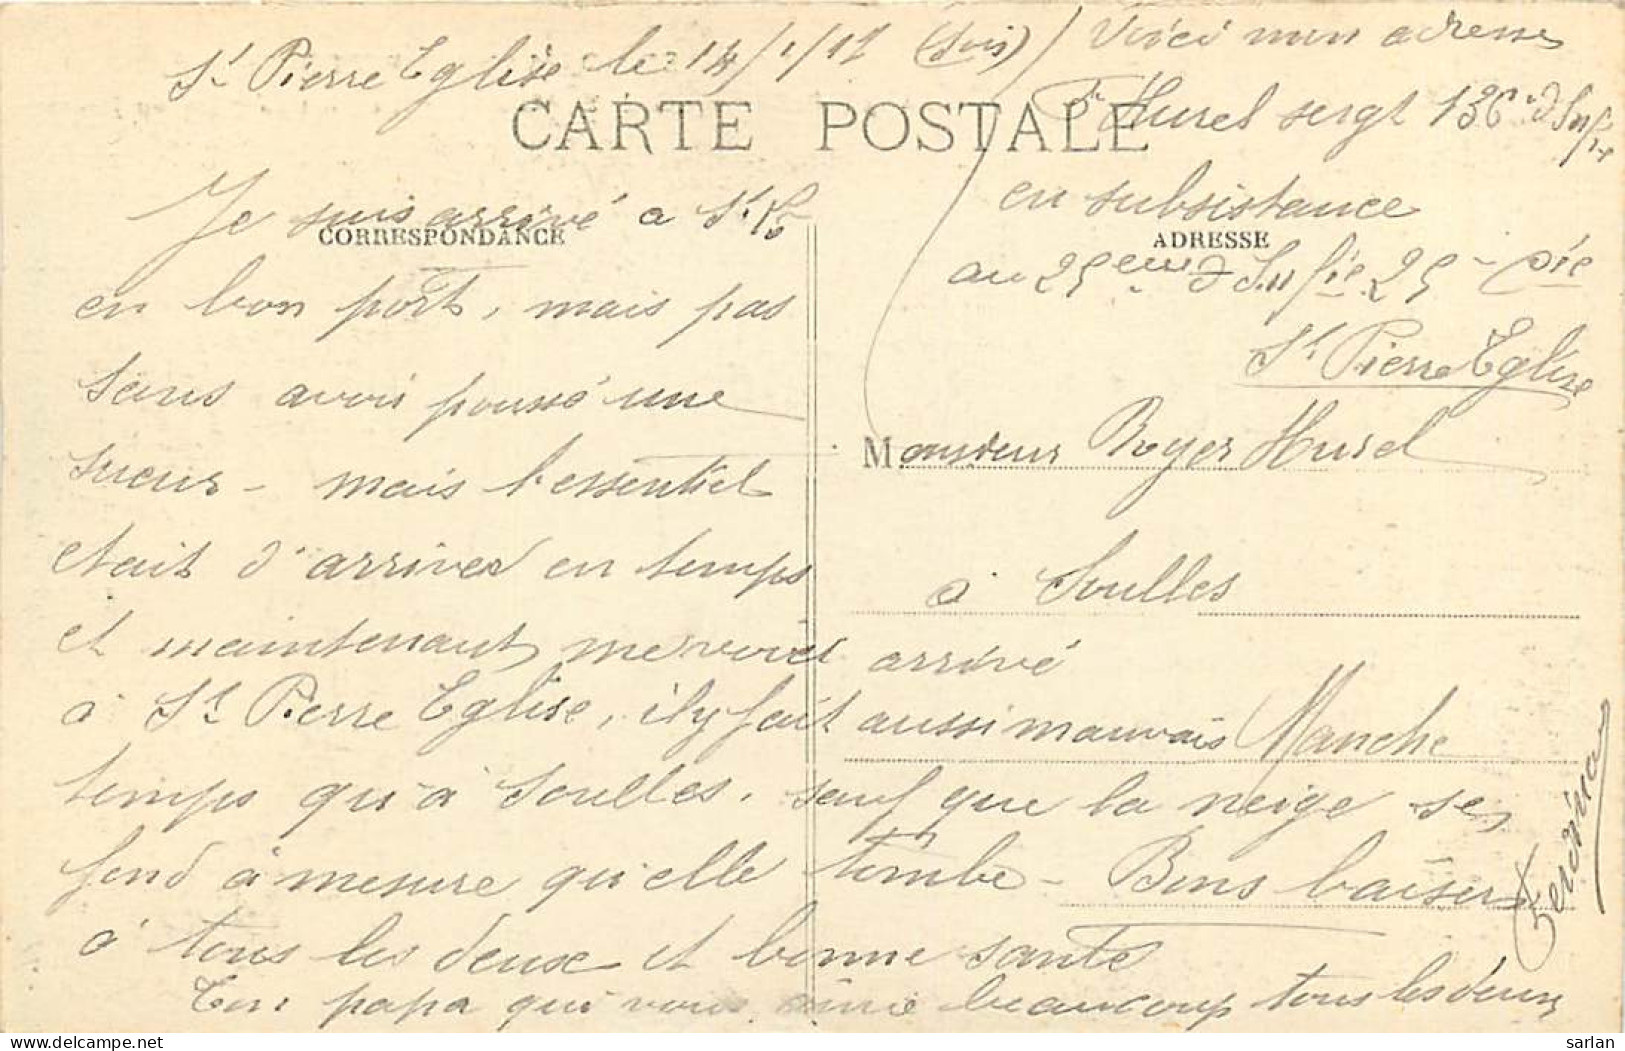 St Pierre Eglise le 14/1/17 (Soir)
Voici mon adresse
Hurel sergt 136e d'Infie
en subsistance
au 25eme d'Infie 25e Cie
St Pierre Eglise
CARTE POSTALE
CORRESPONDANCE
ADRESSE
Je suis arrivé a St
en bon port, mais pas
sans avoir poussé une
sueur - mais l'essentiel
etait d'arriver en temps
et maintenant me voici arrivé
à St Pierre Eglise, il y fait aussi mauvais
temps qu'à Soulles, sauf que la neige se
fond à mesure qu'elle tombe - Bons baisers
à tous les deux et bonne santé
Ton papa qui vous aime beaucoup tous les deux
Monsieur Royer Hurel
à Soulles
Manche
sarlan